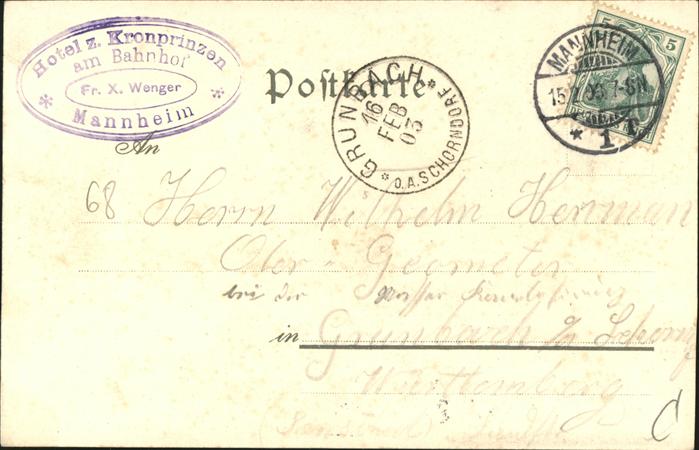 Hotel z. Kronprinzen
am Bahnhof
Fr. X. Wenger
Mannheim
Postkarte
GRUNBACH
16
FEB
03
O.A.SCHORNDORF
MANNHEIM
7-8N.
* 1 T.
5 5
An
68 Herrn Wilhelm Herrman
Ober-Geometer
bei der
in Grunbach
Württemberg